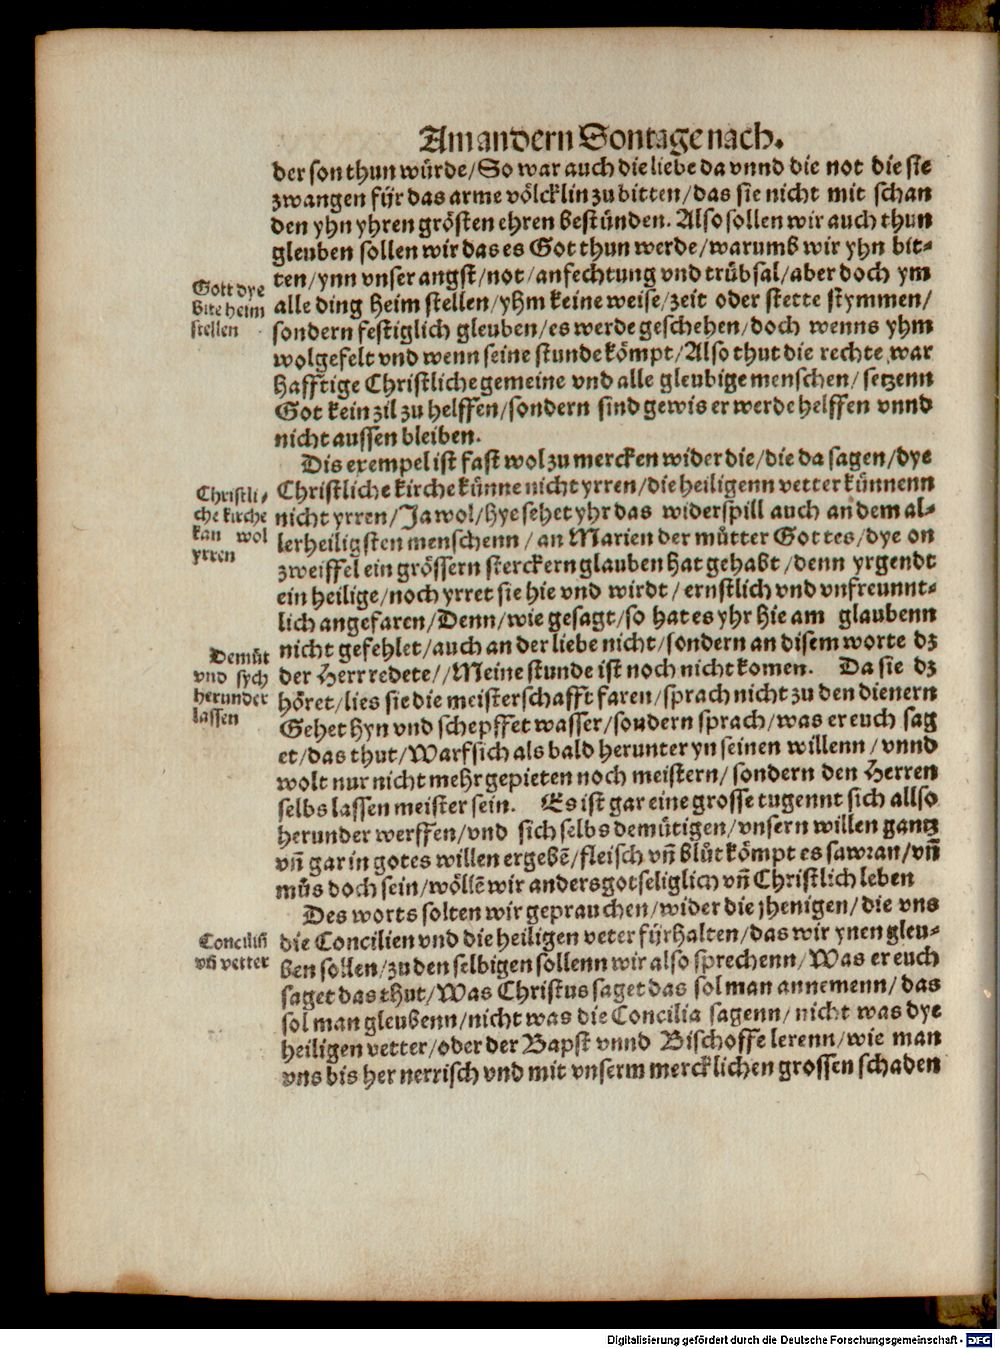 Am andern Sontage nach.
der son thun würde/So war auch die liebe da vnnd die not die sie
zwangen für das arme völcklin zu bitten/das sie nicht mit schan
den yhn yhren grösten ehren bestünden. Also sollen wir auch thun
gleuben sollen wir das es Got thun werde/warumb wir yhn bit-
ten/ynn vnser angst/not/anfechtung vnd trübsal/aber doch ym
alle ding heim stellen/yhm keine weise/zeit oder stette stymmen/
sondern festiglich gleuben/es werde geschehen/doch wenns yhm
wolgefelt vnd wenn seine stunde kömpt/Also thut die rechte war
hafftige Christliche gemeine vnd alle gleubige menschen/setzenn
Got kein zil zu helffen/sondern sind gewis er werde helffen vnnd
nicht aussen bleiben.
Gott dye
bite heim
stellen
Dis exempel ist fast wol zu mercken wider die/die da sagen/dye
Christliche kirche künne nicht yrren/die heiligenn vetter künnenn
nicht yrren/Ja wol/hye sehet yhr das widerspill auch an dem al-
lerheiligsten menschenn/an Marien der mütter Gottes/dye on
zweiffel ein grössern sterckern glauben hat gehabt/denn yrgendt
ein heilige/noch yrret sie hie vnd wirdt/ernstlich vnd vnfreunnt-
lich angefaren/Denn/wie gesagt/so hat es yhr hie am glaubenn
nicht gefehlet/auch an der liebe nicht/sondern an disem worte dz
der Herr redete//Meine stunde ist noch nicht komen. Da sie dz
höret/lies sie die meisterschafft faren/sprach nicht zu den dienern
Gehet hyn vnd schepffet wasser/sondern sprach/was er euch sag
et/das thut/Warf sich als bald herunter yn seinen willenn/vnnd
wolt nur nicht mehr gepieten noch meistern/sondern den Herren
selbs lassen meister sein. Es ist gar eine grosse tugennt sich allso
herunder werffen/vnd sich selbs demütigen/vnsern willen gantz
vñ gar in gotes willen ergebẽ/fleisch vñ blůt kömpt es sawr an/vñ
můs doch sein/wöllẽ wir anders gotseliglich vñ Christlich leben
Christli-
che kirche
kan wol
yrren
Demůt
vnd sych
herunder
lassen
Des worts solten wir geprauchen/wider die jhenigen/die vns
die Concilien vnd die heiligen veter fürhalten/das wir ynen gleu-
ben sollen/zu den selbigen sollenn wir also sprechenn/Was er euch
saget das thut/Was Christus saget das sol man annemenn/das
sol man gleubenn/nicht was die Concilia sagenn/nicht was dye
heiligen vetter/oder der Bapst vnnd Bischoffe lerenn/wie man
vns bis her nerrisch vnd mit vnserm mercklichen grossen schaden
Conciliũ
vñ vetter
Digitalisierung gefördert durch die Deutsche Forschungsgemeinschaft - DFG